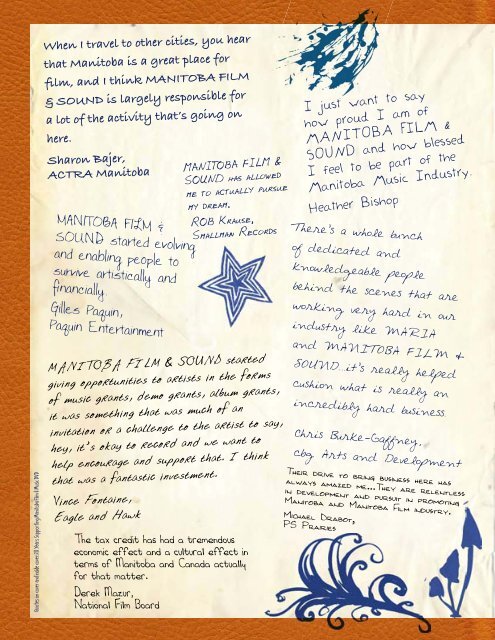 When I travel to other cities, you hear
that Manitoba is a great place for
film, and I think MANITOBA FILM
& SOUND is largely responsible for
a lot of the activity that's going on
here.
Sharon Bajer,
ACTRA Manitoba
MANITOBA FILM &
SOUND HAS ALLOWED
ME TO ACTUALLY PURSUE
MY DREAM.
ROB KRAUSE,
SMALLMAN RECORDS
I just want to say
how proud I am of
MANITOBA FILM &
SOUND and how blessed
I feel to be part of the
Manitoba Music Industry.
Heather Bishop
MANITOBA FILM &
SOUND started evolving
and enabling people to
survive artistically and
financially.
Gilles Paquin,
Paquin Entertainment
There's a whole bunch
of dedicated and
knowledgeable people
behind the scenes that are
working very hard in our
industry like MARIA
and MANITOBA FILM &
SOUND. it's really helped
cushion what is really an
incredibly hard business
Chris Burke-Gaffney,
cbg Arts and Development
MANITOBA FILM & SOUND started
giving opportunities to artists in the forms
of music grants, demo grants, album grants,
it was something that was much of an
invitation or a challenge to the artist to say,
hey, it's okay to record and we want to
help encourage and support that. I think
that was a fantastic investment.
Vince Fontaine,
Eagle and Hawk
THEIR DRIVE TO BRING BUSINESS HERE HAS
ALWAYS AMAZED ME... THEY ARE RELENTLESS
IN DEVELOPMENT AND PURSUIT IN PROMOTING
MANITOBA AND MANITOBA FILM INDUSTRY.
MICHAEL DRABOT,
PS PRAIRIES
The tax credit has had a tremendous
economic effect and a cultural effect in
terms of Manitoba and Canada actually
for that matter.
Derek Mazur,
National Film Board